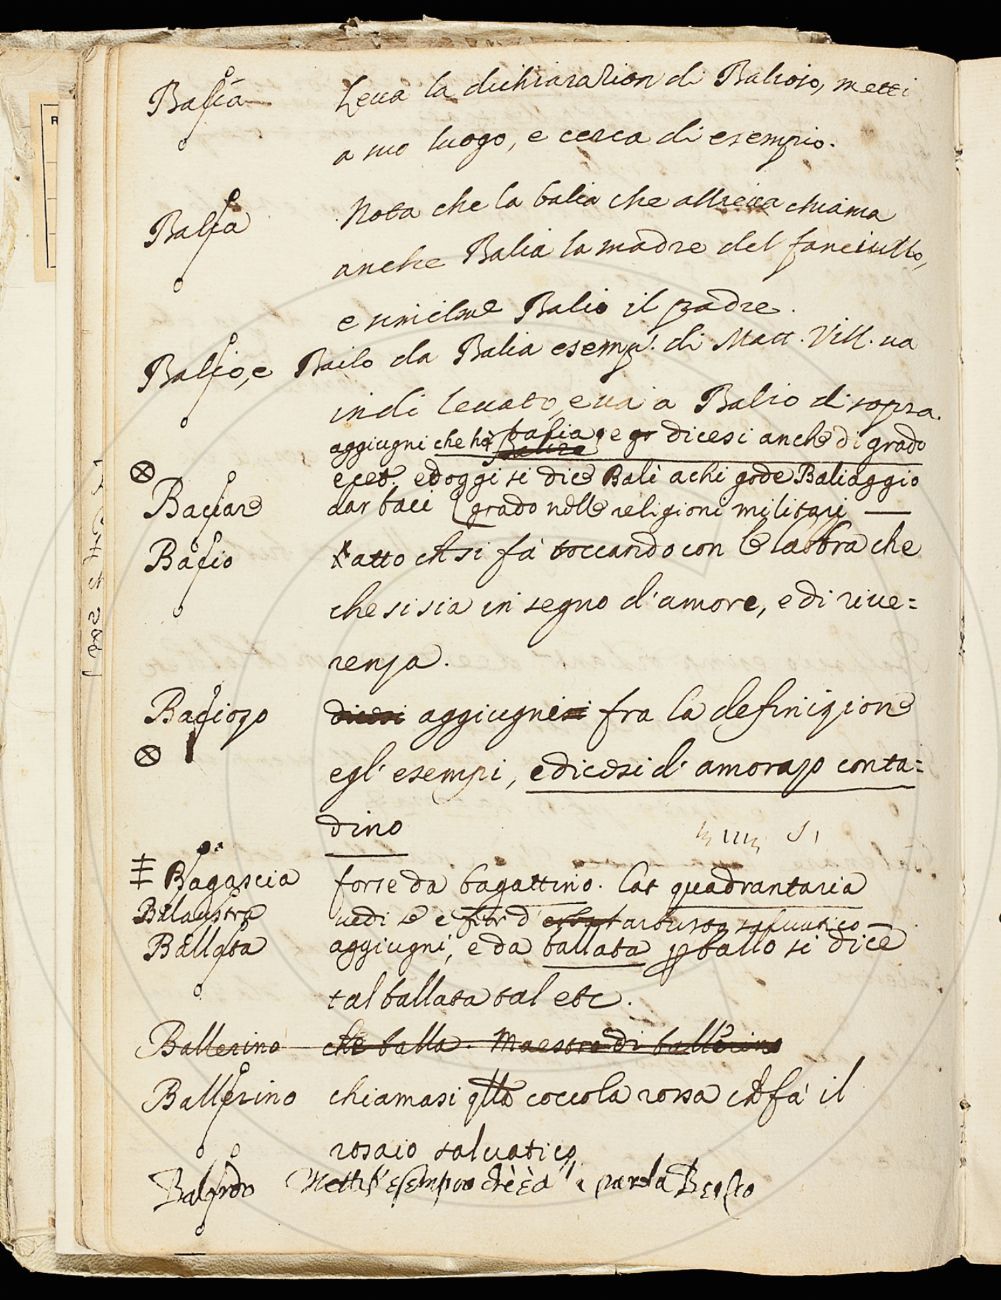 Balìa Leva la dichiarazion di Balioso, metti
a suo luogo, e cerca di esempio.
Balia Nota che la balia che allieva chiama
anche Balia la madre del fanciullo,
e similme Balio il padre.
Balio, e Bailo da Balia esemp. di Matt. Vill. va
indi levato, e va a Balio di sopra.
aggiugni che ha balia e dicesi anche di grado
ecet. ed oggi si dice Balì a chi gode Baliaggio
Baciare dar baci (grado nelle religioni militari
Bacio atto ch si fa toccando con le labbra che
che si sia in segno d'amore, e di rive=
renza.
Baciozo dicesi aggiugnesi fra la definizione
egl' esempi, e dicesi d' amorazo conta=
dino
Bagascia forse da bagattino. Lat quadrantaria
Balaustra vedi se e fior d' arbusto salvatico
Ballata aggiugni, e da ballata p ballo si dice
tal ballata tal etc.
Ballerino che balla. Maestro di ballerino
Ballerino chiamasi qlla coccola rossa ch fa il
rosaio salvatico
Metti l'esempio